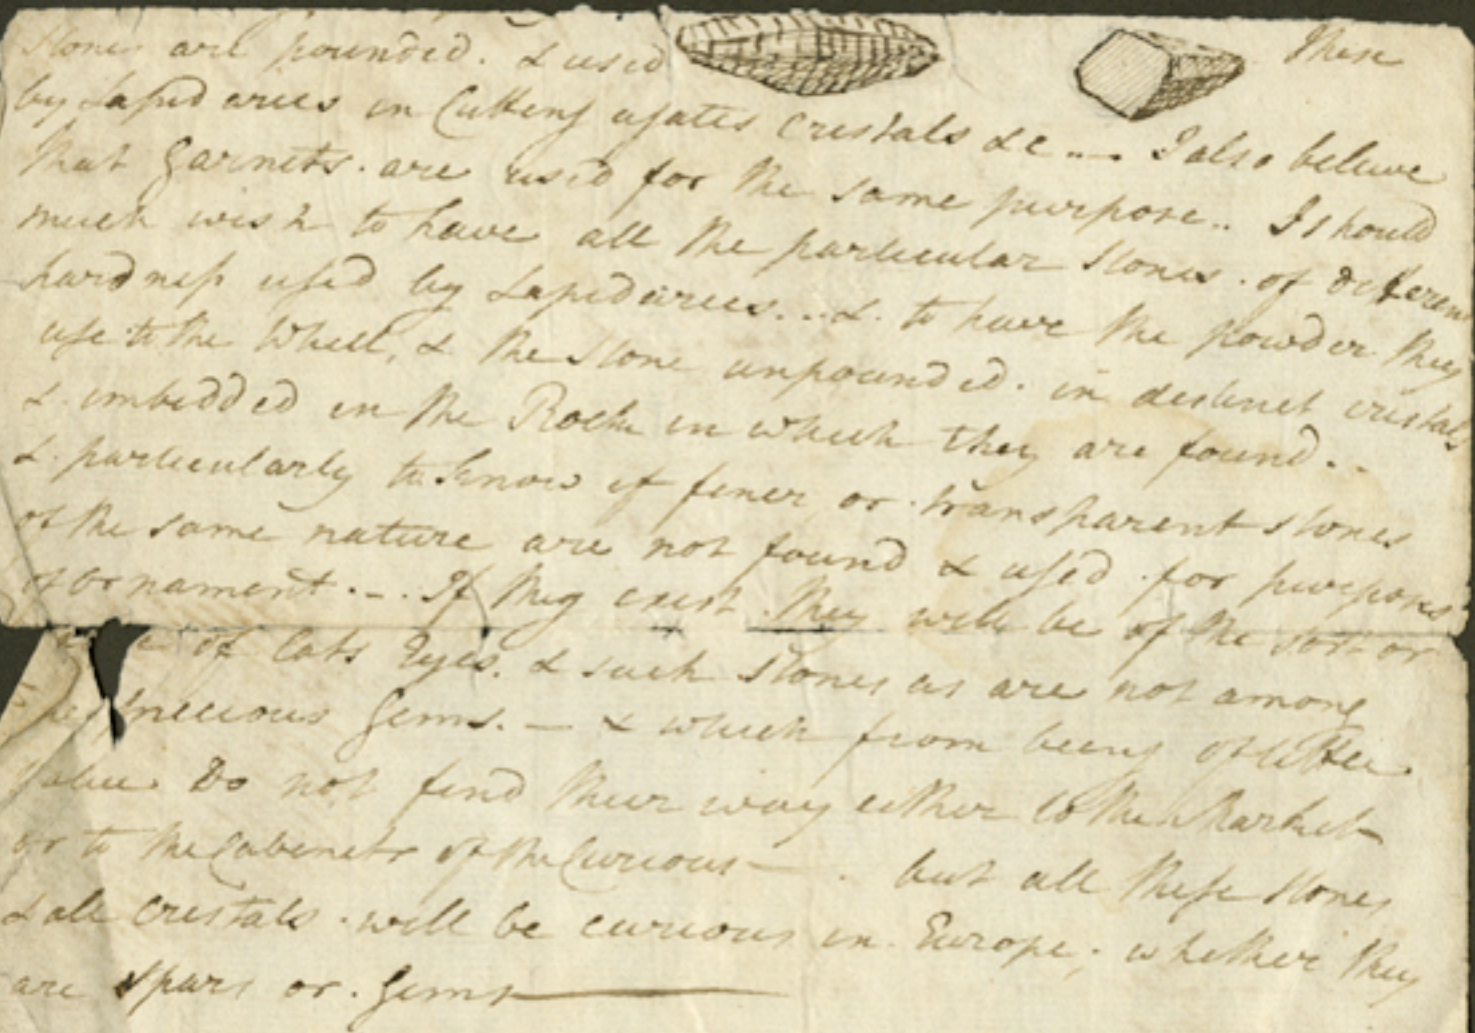 These
stones are pounded. & used
by Lapidaries in Cutting agates Cristals &c ... I also beleive
that Garnets. are used for the same purpose.. I should
much wish to have all the particular stones. of different
hardness used by Lapidaries... &. to have the powder they
use to the Wheel, & the stone unpounded. in distinct cristals
&. imbedded in the Rock in which they are found..
&. particularly to know if finer or. transparent stones
of the same nature are not found & used. for purposes
of ornament. - . If they exist. they will be of the sort or
of Cats Eyes. & such stones as are not among
the precious Gems. - & which from being of little
value Do not find their way either to the Market
or to the Cabinets of the Curious - . but all these stones
& all Cristals. will be curious in. Europe; whether they
are spars or. Gems